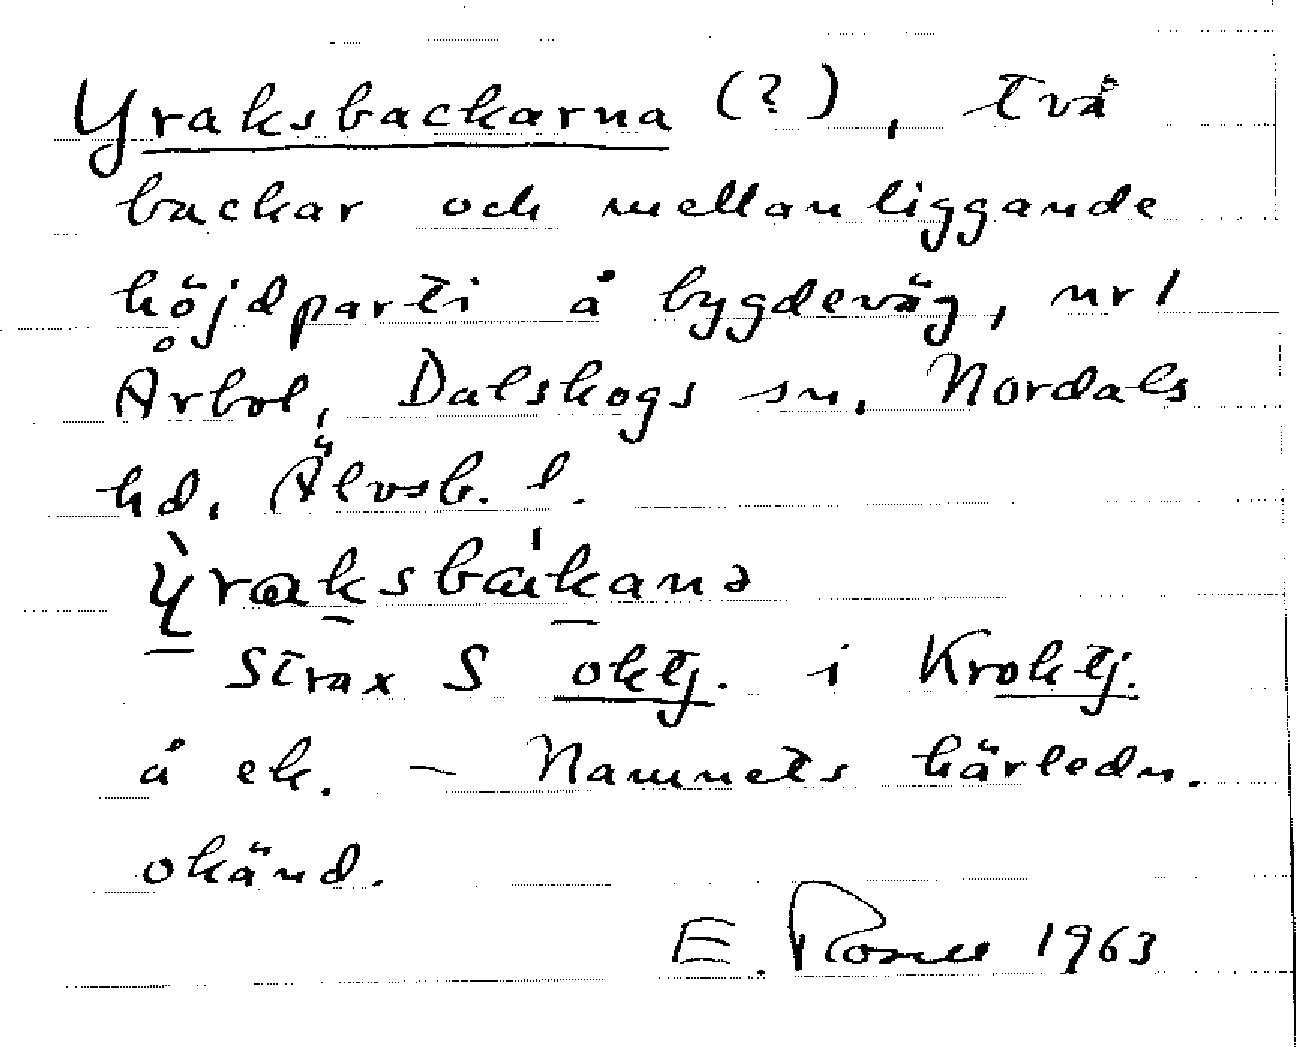 Yraksbackarna (?), två
backar och mellanliggande
höjdparti å bygdeväg, nr 1
Årbol, Dalskogs sn, Nordals
hd, Älvsb. l.
Ỳraksbákanə
Strax S oktj. i Kroktj.
å ek. – Namnets härledn.
okänd.
E. 1963